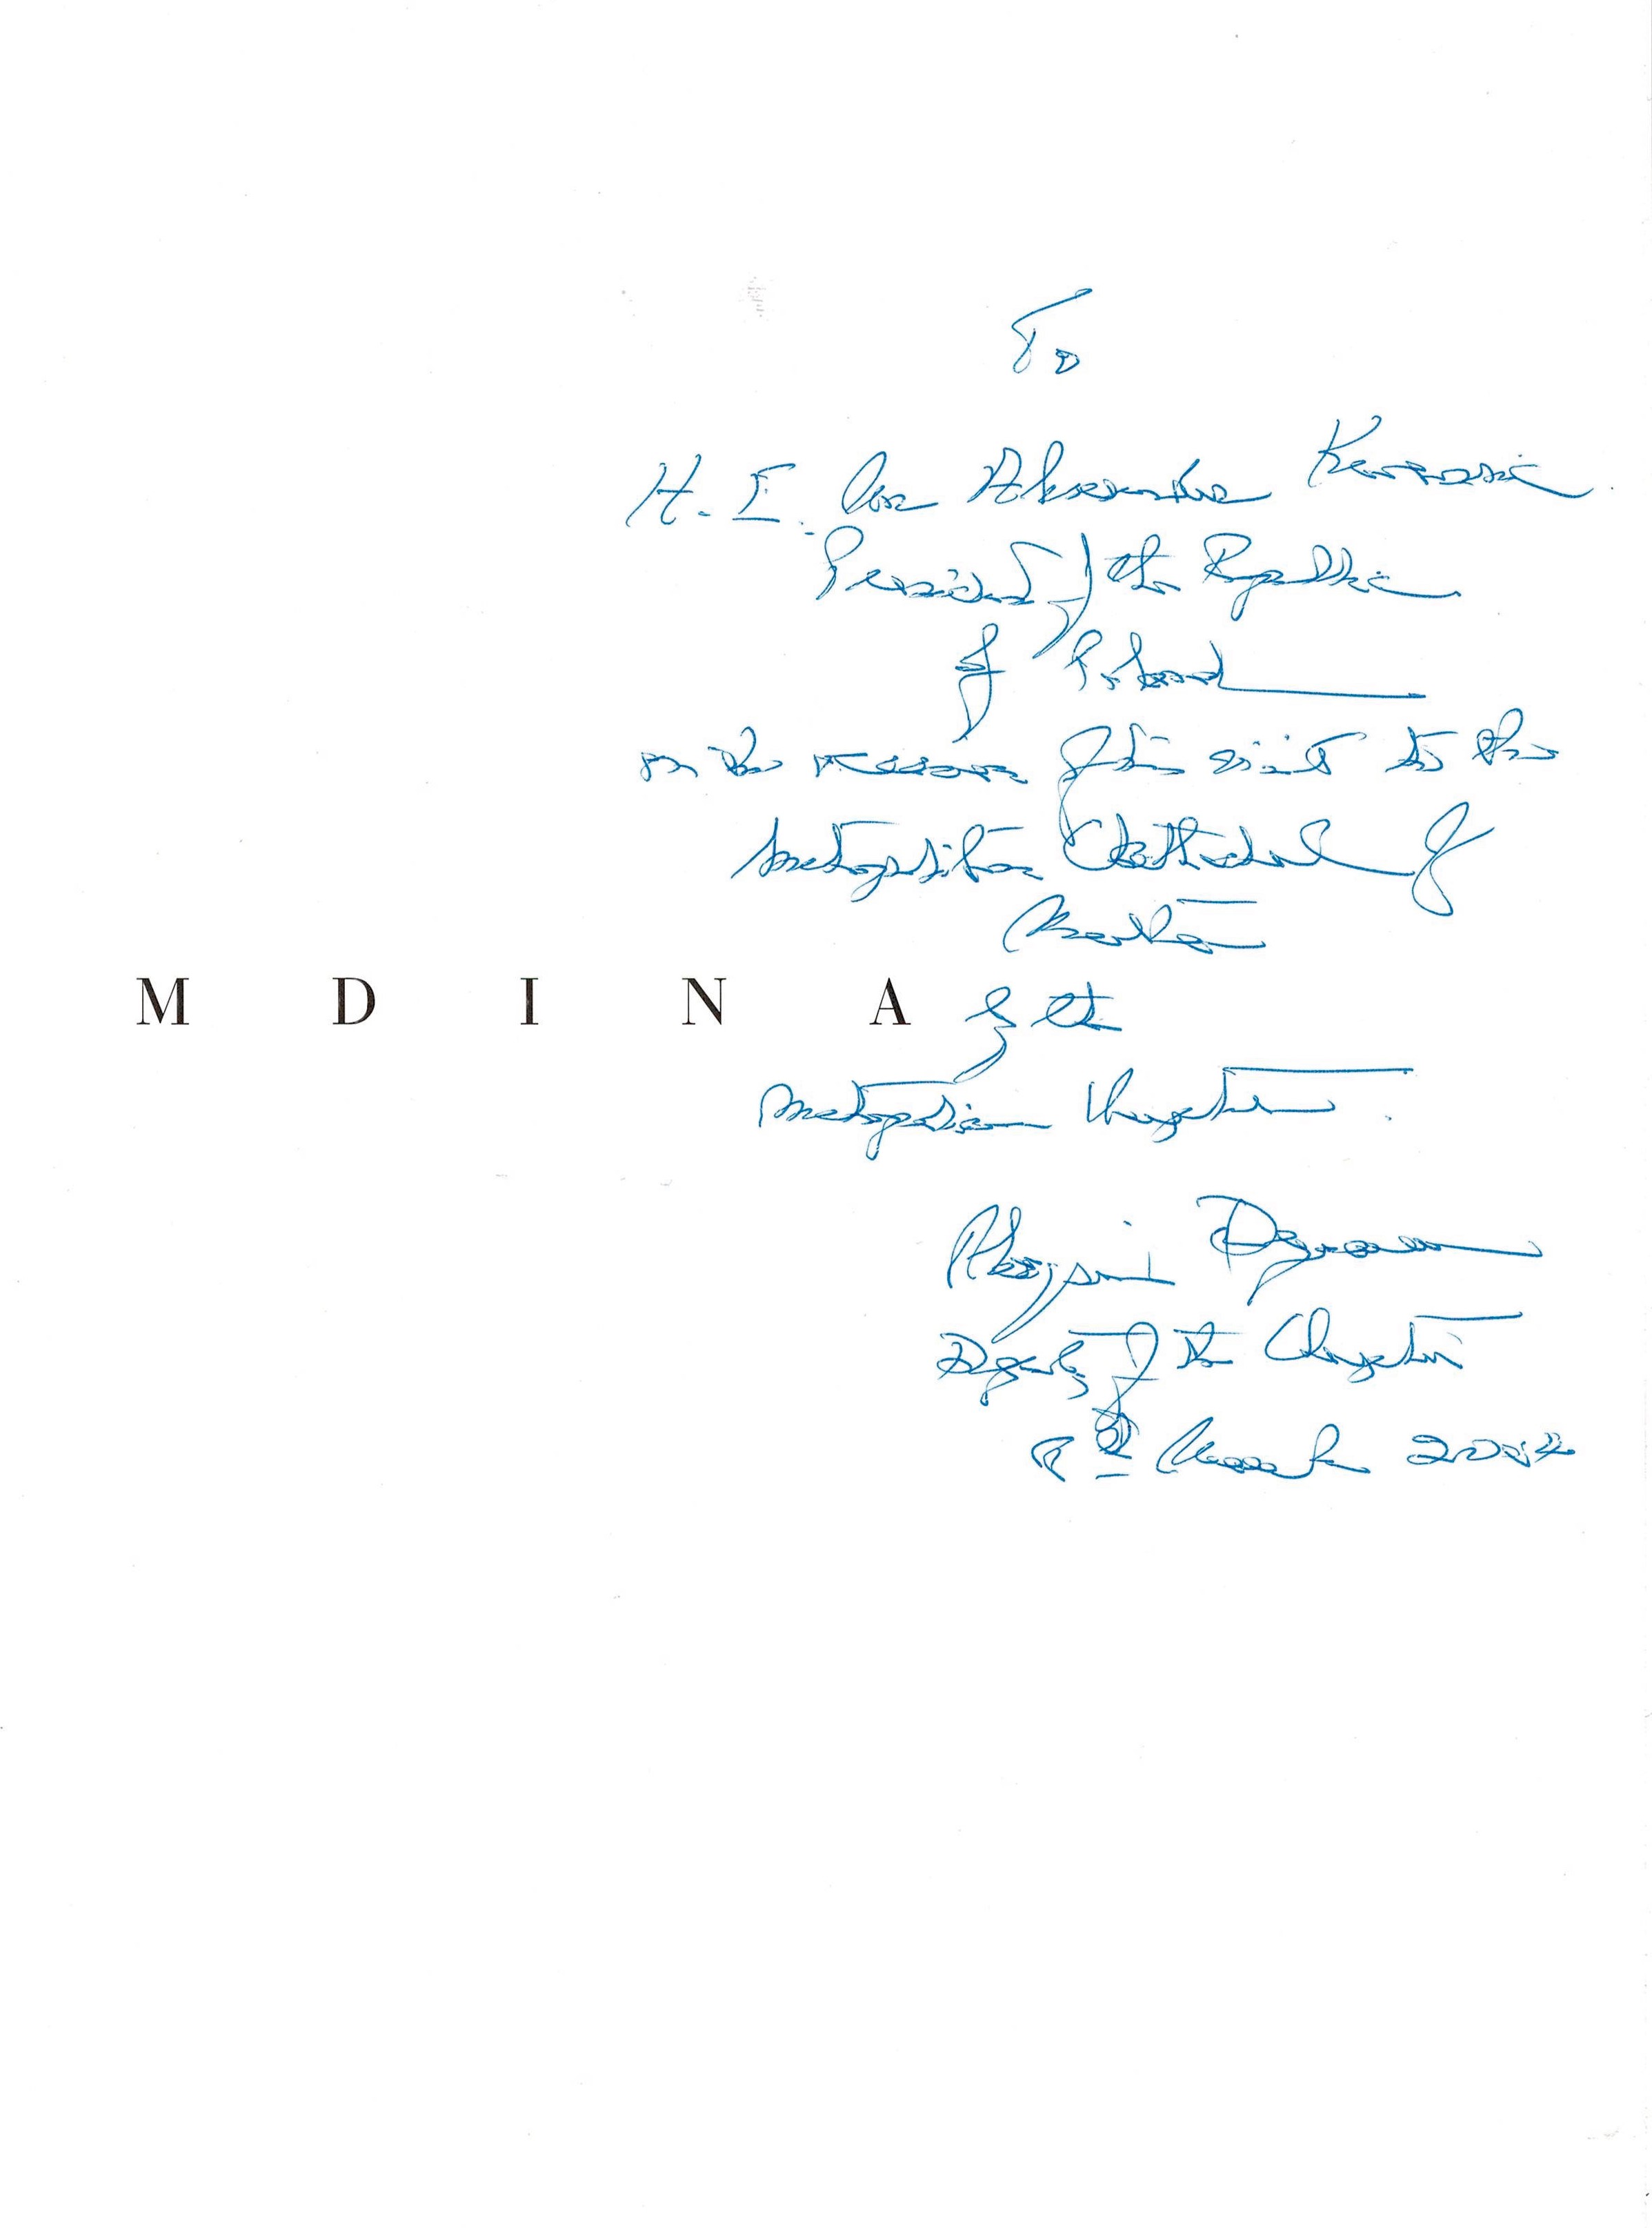 To
H. E. Mr Aleksander
President of the Republic
of Poland
on the occasion of his visit to the
Metropolitan Cathedral of
Malta
M D I N A
by the
Metropolitan Chapter.
Deputy of the Chapter
March 2004